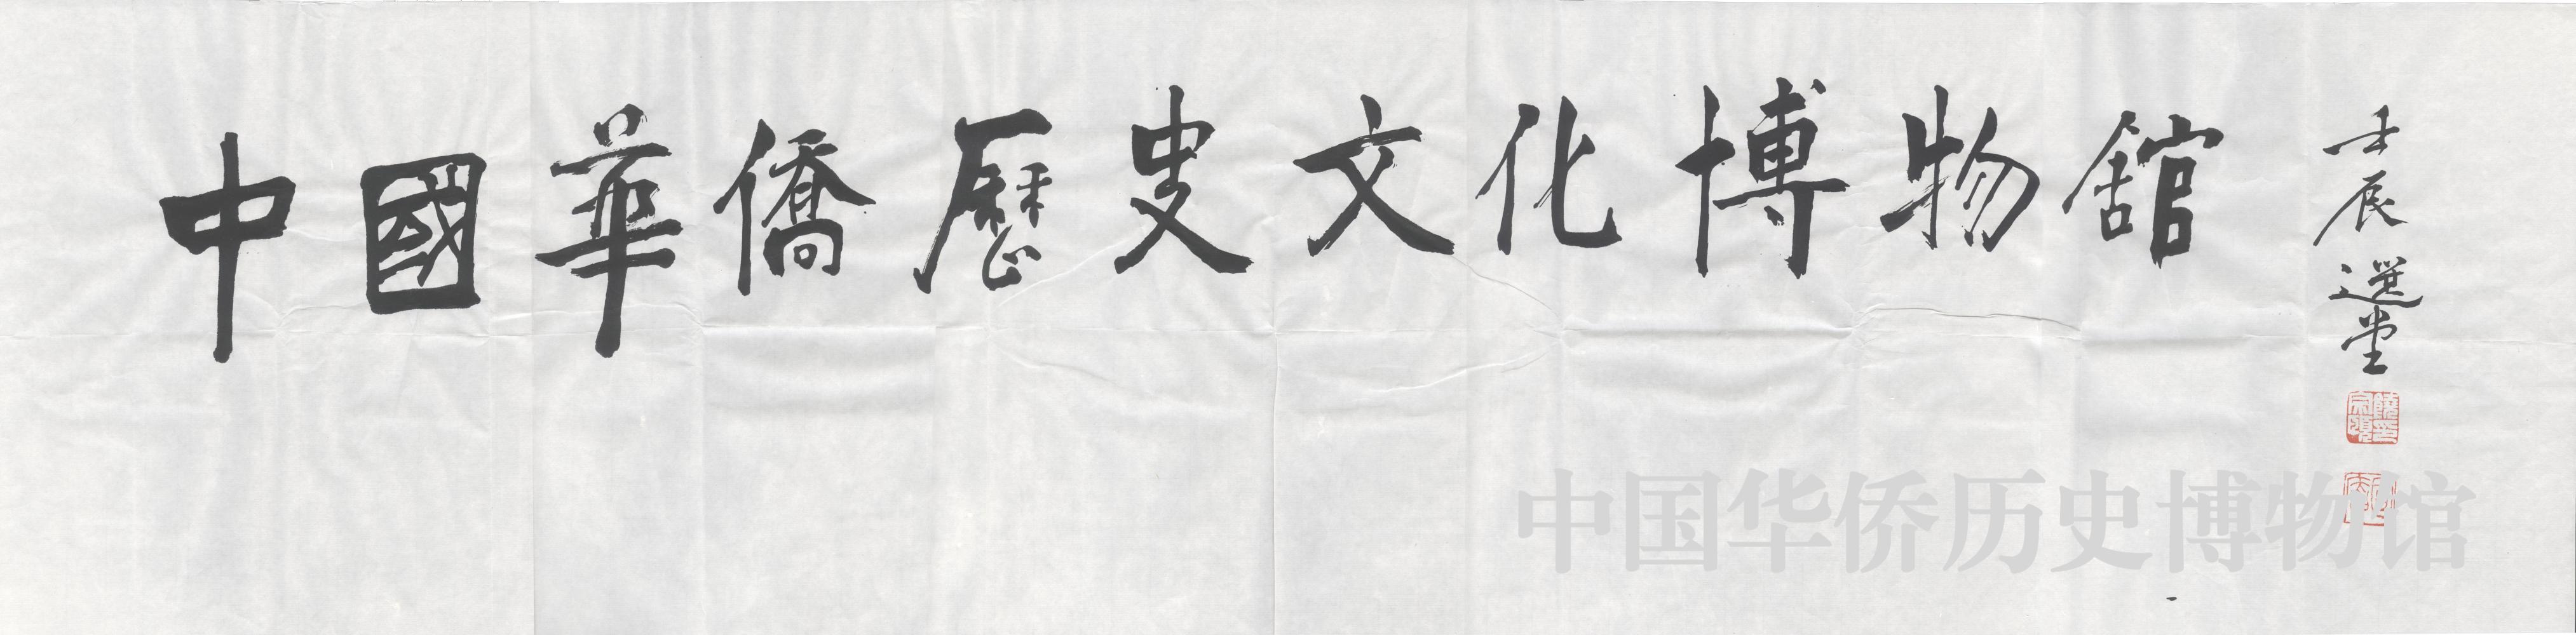 中國華僑歷史文化博物舘
壬辰選堂
饒宗頤印
中国华侨历史博物馆